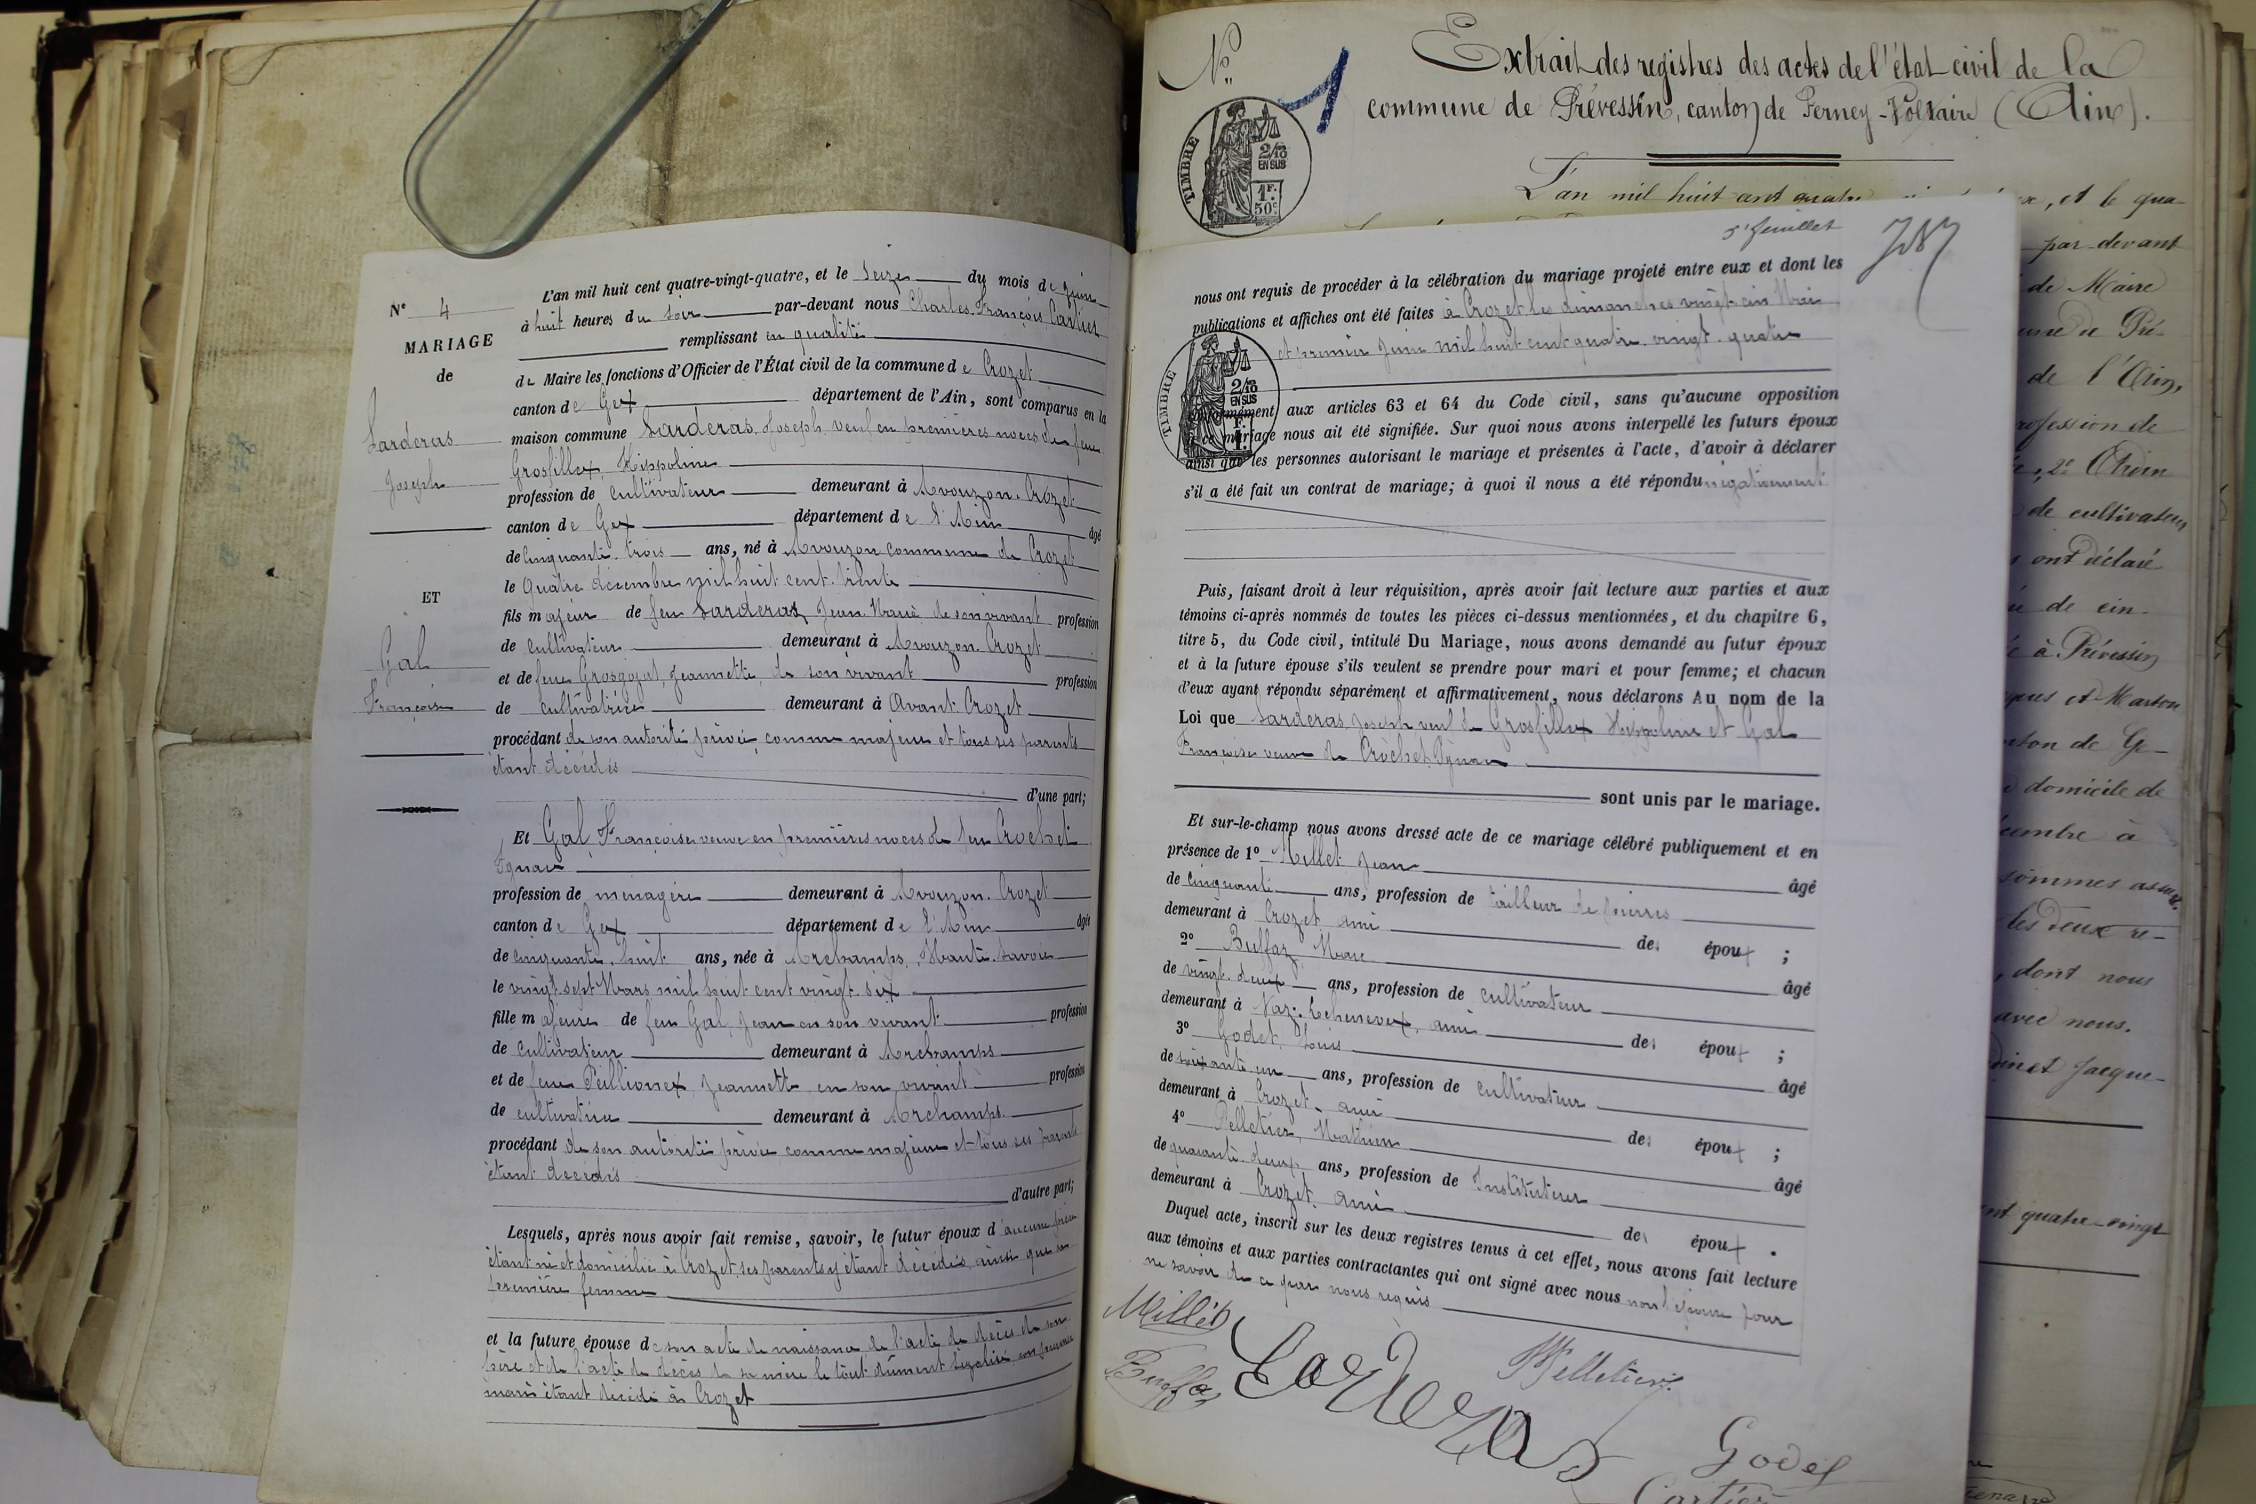 N° 4
MARIAGE
de
Larderas
Joseph
ET
Gal
Françoise
L'an mil huit cent quatre-vingt-quatre, et le Seize du mois de juin
à huit heures du soir par-devant nous Charles François Cartier
remplissant en qualité
de Maire les fonctions d'Officier de l'État civil de la commune de Crozet
canton de Gex département de l'Ain, sont comparus en la
maison commune Larderas, Joseph, veuf en premières noces de feue
Grosfillex, Hippoline
profession de cultivateur demeurant à Avouzon. Crozet
canton de Gex département de l'Ain âgé
de cinquante trois ans, né à Avouzon commune de Crozet
le Quatre décembre mil huit cent trente
fils majeur de feu Larderas, Jean Marie de son vivant profession
de cultivateur demeurant à Avouzon. Crozet
et de feue Grosgojat, Jeannette, de son vivant profession
de cultivatrice demeurant à Avant. Crozet
procédant de son autorité privée comme majeur et tous ses parents
étant décédés
d'une part;
Et Gal Françoise veuve en premières noces de feu Crochet
Ignace
profession de ménagère demeurant à Avouzon. Crozet
canton de Gex département de l'Ain âgée
de cinquante huit ans, née à Archamps, Haute-Savoie
le vingt sept Mars mil huit cent vingt six
fille majeure de feu Gal, Jean en son vivant profession
de cultivateur demeurant à Archamps
et de feue Peillionnex, Jeannette en son vivant profession
de cultivatrice demeurant à Archamps.
procédant de son autorité privée comme majeure et tous ses parents
étant décédés
d'autre part;
Lesquels, après nous avoir fait remise, savoir, le futur époux d'aucune pièce
étant né et domicilié à Crozet, ses parents y étant décédés, ainsi que sa
première femme
et la future épouse de son acte de naissance de l'acte de décès de son
père et de l'acte de décès de sa mère le tout dûment légalisé son premier
mari étant décédé à Crozet
N°
1
Extrait des registres des actes de l'état civil de la
commune de Prévessin, canton de Ferney-Voltaire (Ain).
TIMBRE
2/10 EN SUS
1F. 50c
L'an mil huit cent quatre
et le qua-
par-devant
de Maire
de Pré-
de l'Ain,
profession de
de cultivateur,
ont déclaré
de cin-
à Prévessin
et Marson
canton de Ge-
domicile de
les deux re-
dont nous
avec nous.
Jacque-
quatre-vingt
5e feuillet
nous ont requis de procéder à la célébration du mariage projeté entre eux et dont les
publications et affiches ont été faites à Crozet les dimanches vingt-cinq Mai
et premier Juin mil huit cent quatre-vingt-quatre
TIMBRE
2/10 EN SUS
conformément aux articles 63 et 64 du Code civil, sans qu'aucune opposition
à ce mariage nous ait été signifiée. Sur quoi nous avons interpellé les futurs époux
ainsi que les personnes autorisant le mariage et présentes à l'acte, d'avoir à déclarer
s'il a été fait un contrat de mariage; à quoi il nous a été répondu négativement
Puis, faisant droit à leur réquisition, après avoir fait lecture aux parties et aux
témoins ci-après nommés de toutes les pièces ci-dessus mentionnées, et du chapitre 6,
titre 5, du Code civil, intitulé Du Mariage, nous avons demandé au futur époux
et à la future épouse s'ils veulent se prendre pour mari et pour femme; et chacun
d'eux ayant répondu séparément et affirmativement, nous déclarons Au nom de la
Loi que Larderas, Joseph veuf de Grosfillex Hippoline et Gal
Françoise veuve de Crochet Ignace
sont unis par le mariage.
Et sur-le-champ nous avons dressé acte de ce mariage célébré publiquement et en
présence de 1° Millet Jean âgé
de cinquante ans, profession de tailleur de pierres
demeurant à Crozet ami des époux ;
2° Buffaz, Marc âgé
de vingt-deux ans, profession de cultivateur
demeurant à Naz. Echenevex, ami des époux ;
3° Godet, Louis âgé
de soixante un ans, profession de cultivateur
demeurant à Crozet, ami des époux ;
4° Pelletier, Mathieu âgé
de quarante-deux ans, profession de Instituteur
demeurant à Crozet ami des époux .
Duquel acte, inscrit sur les deux registres tenus à cet effet, nous avons fait lecture
aux témoins et aux parties contractantes qui ont signé avec nous non l'épouse pour
ne savoir de ce par nous requis
Millet
Buffaz
Larderas
Pelletier
Godet
Cartier